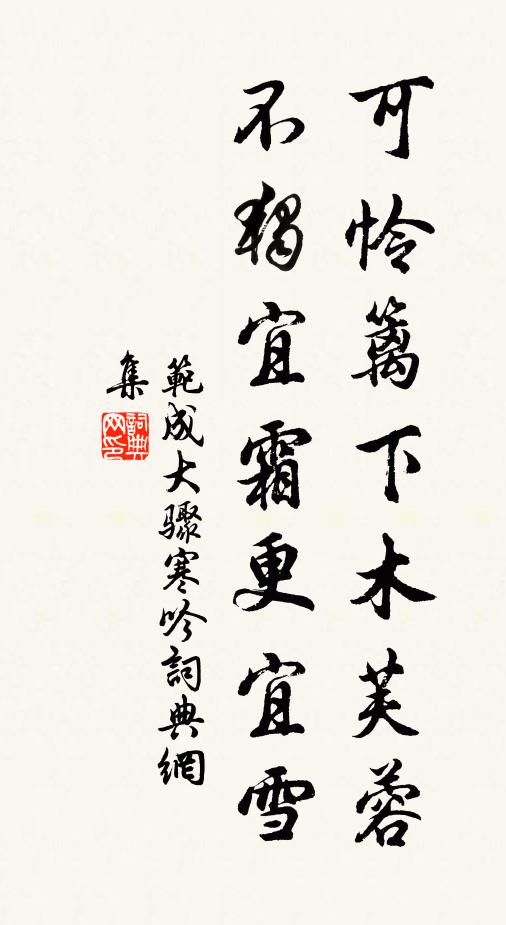 可怜篱下木芙蓉
不独宜霜更宜雪
範成大骤寒吟詞典網
集
詞典网印